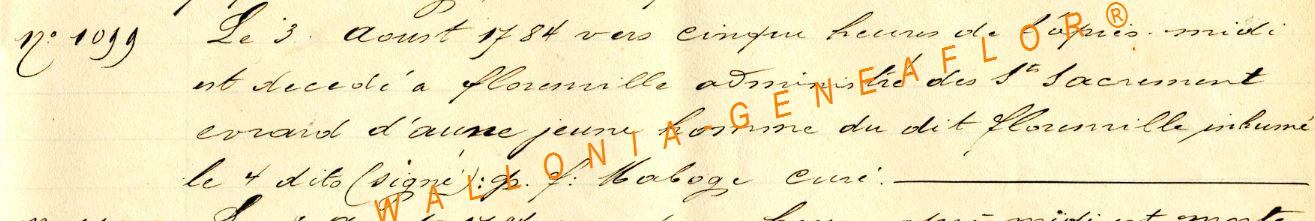 n° 1099 Le 3. Aoust 1784 vers cinque heures de l'après-midi
est decedé a florenville administré des Sts Sacrement
evrard d'aune jeune homme du dit florenville inhumé
le 4 dito (signé): p. f. Maboge curé.
WALLONIA-GENEAFLOR®